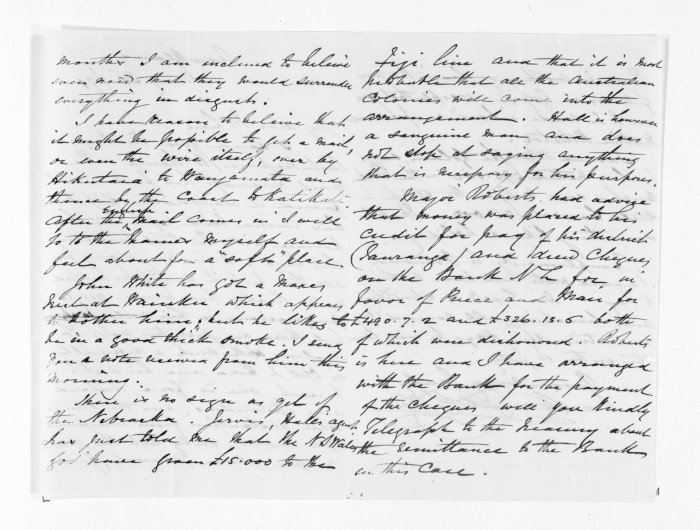 months I am inclined to believe
even now that they would surrender
everything in disgust.
I have reason to believe that
it might be possible to get a mail,
or even the wire itself, over by
Hikutaia to Wangamata and
thence by the coast to Katikati.
After the English Mail comes in I will
go to the Thames myself and
feel about for a "soft" place
John White has got a Maori
meet at Wairoku which appears
to bother him, but he likes to
be in a good thick smoke. I send
you a note received from him this
morning.
There is no sign as yet of
the Nebraska. Jervis, Hall's agent
has just told me that the N S Wales
Govt have given £15.000 to the
Fiji line and that it is most
probable that all the Australian
Colonies will come into the
arrangement. Hall is however
a sanguine man and does
not stop at saying anything
that is necessary for his purposes.
Major Roberts had advice
that money was placed to his
credit for pay of his district
(Tauranga) and issued Cheques
on the Bank N Z for, in
favor of and Man for
£490.7.2 and £326.13.6 both
of which were dishonored. Roberts
is here and I have arranged
with the Bank for the payment
of the Cheques will you kindly
Telegraph to the Treasury about
the remittance to the Bank
in this Case.